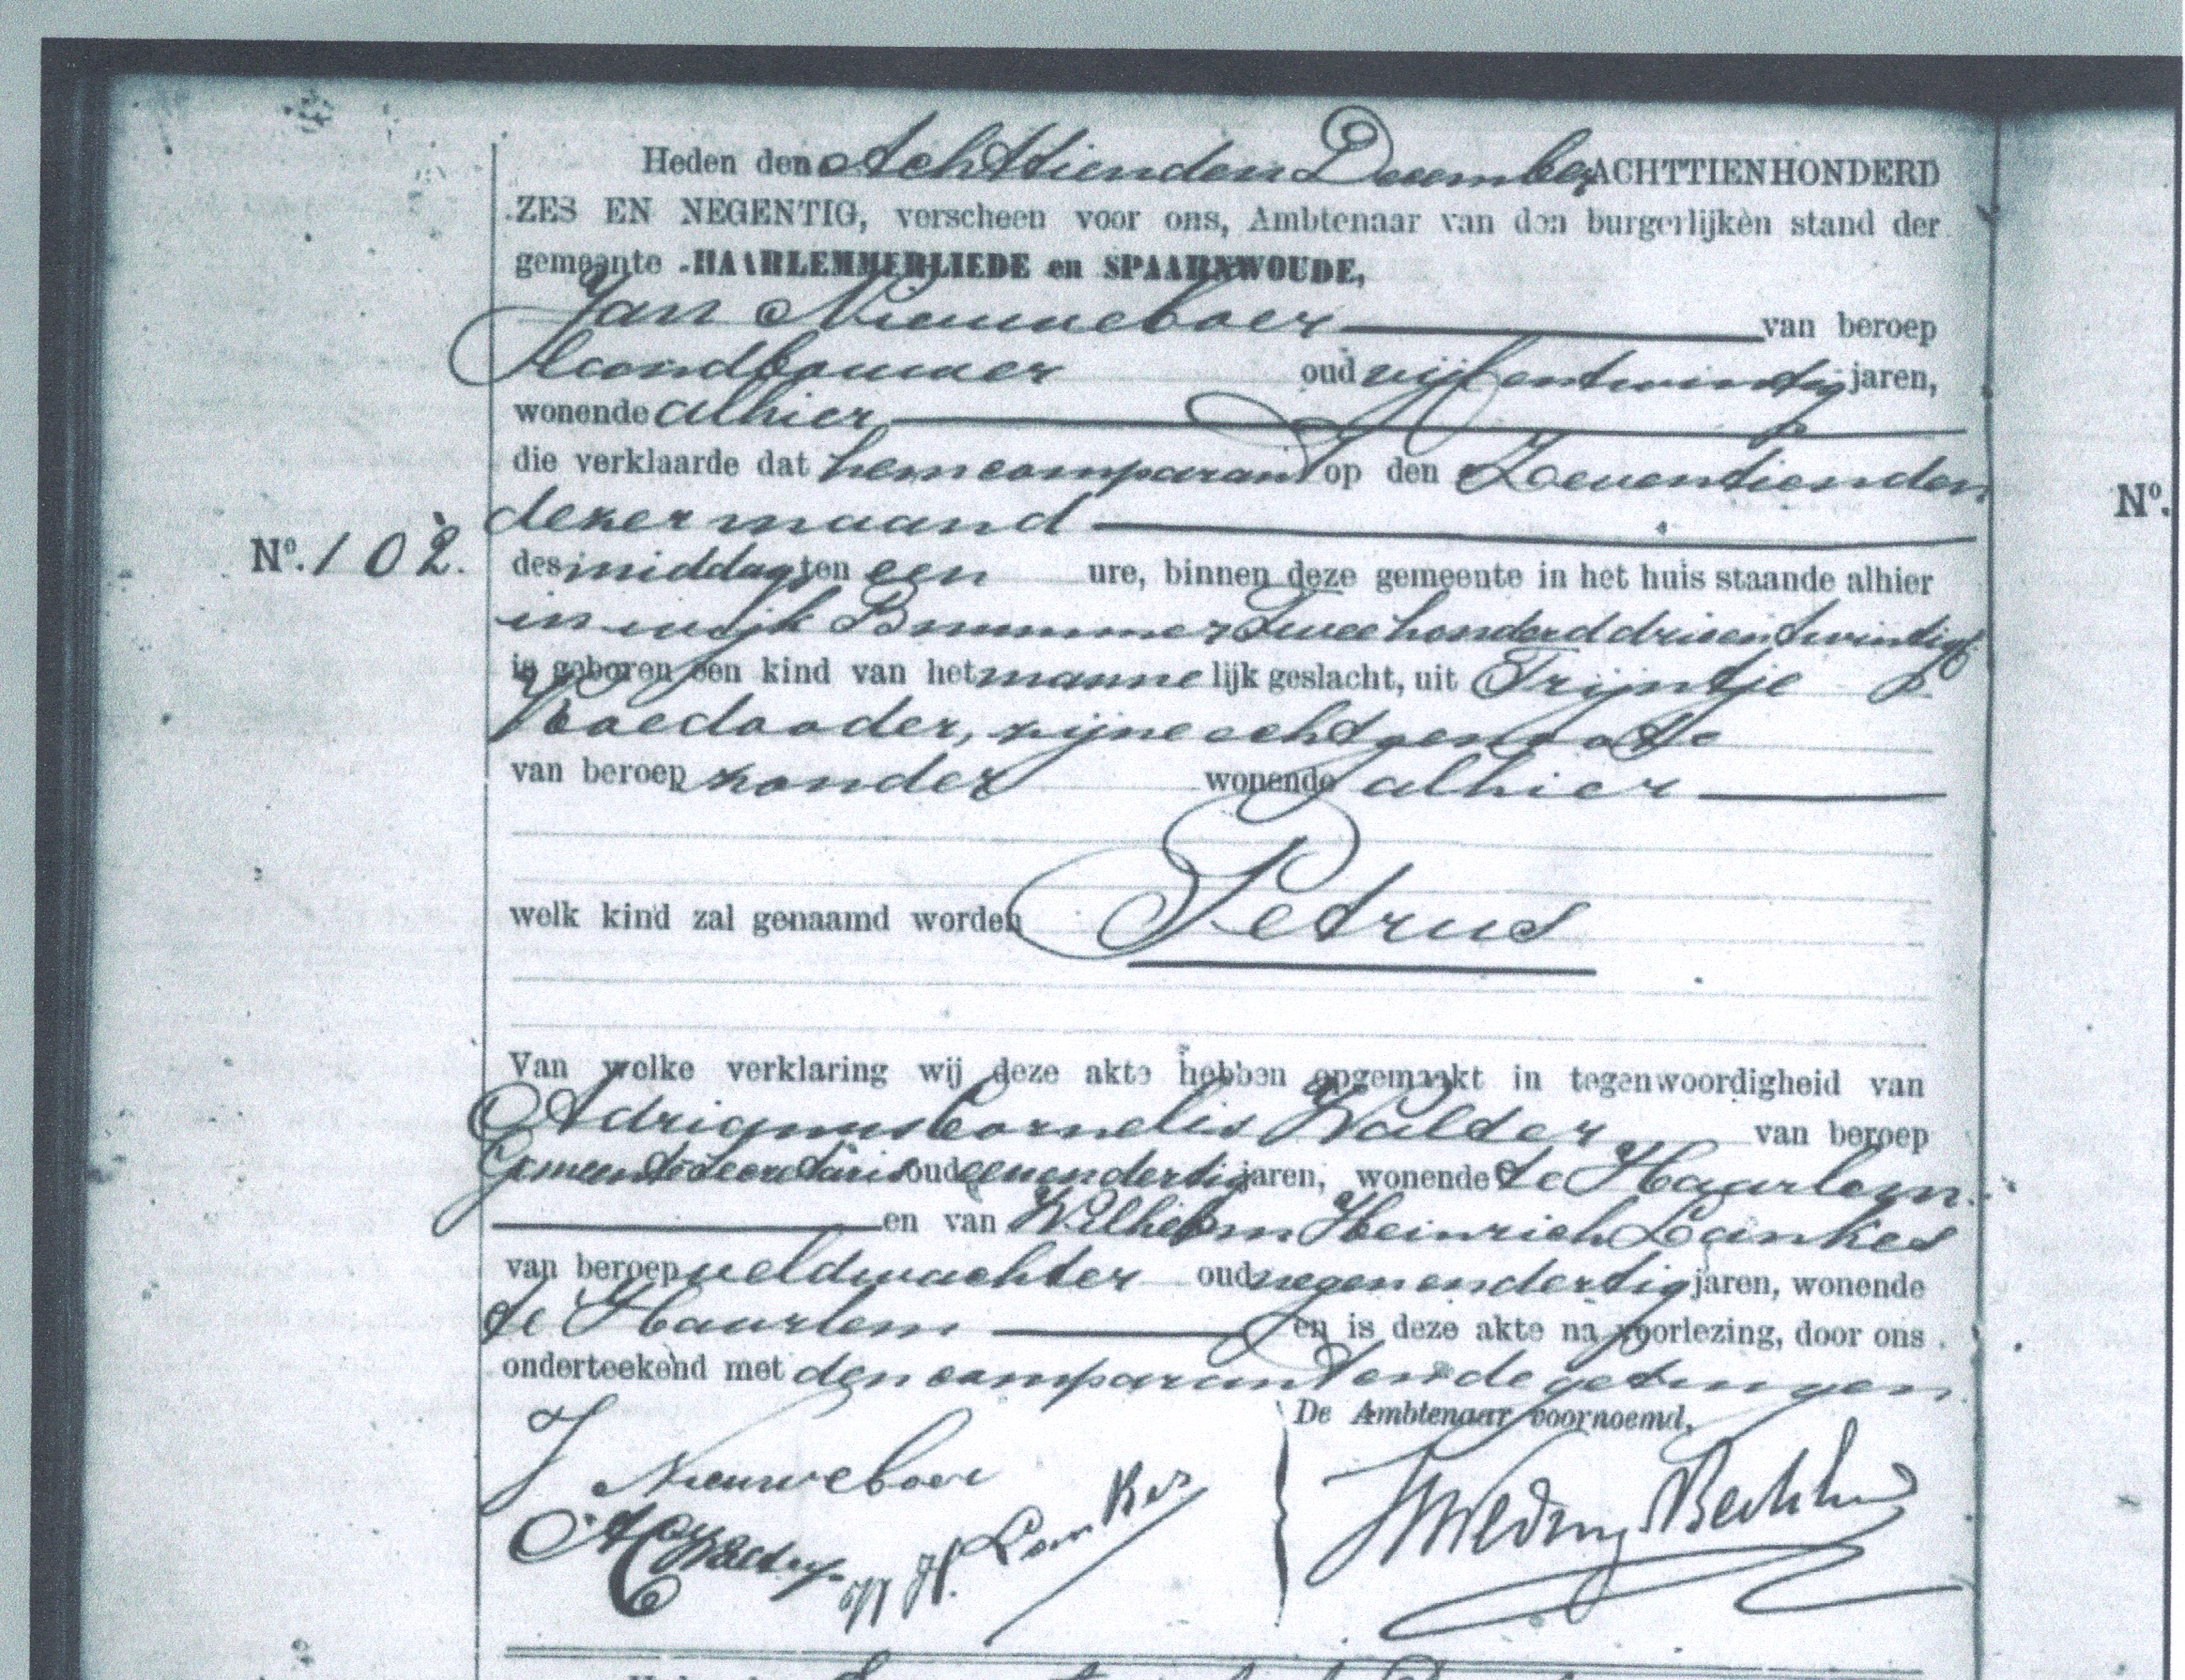 Heden den Achttienden December ACHTTIENHONDERD
ZES EN NEGENTIG, verscheen voor ons, Ambtenaar van den burgerlijken stand der
gemeente HAARLEMMERLIEDE en SPAARNWOUDE,
Jan Nieuweboer van beroep
Landbouwer oud vijfentwintig jaren,
wonende alhier
die verklaarde dat hem comparant op den Zeventienden
dezer maand
Nº. 102.
Nº.
des middags ten een ure, binnen deze gemeente in het huis staande alhier
in wijk B nummer Tweehonderd drieentwintig
is geboren een kind van het mannelijk geslacht, uit Trijntje
Roedooder, zijne echtgenoote
van beroep zonder wonende alhier
welk kind zal genaamd worden Petrus
Van welke verklaring wij deze akte hebben opgemaakt in tegenwoordigheid van
Adrianus Cornelis Walder van beroep
Gemeentesecretaris oud eenendertig jaren, wonende te Haarlem
en van Wilhelm Heinrich Lankes
van beroep veldwachter oud negenendertig jaren, wonende
te Haarlem en is deze akte na voorlezing, door ons
onderteekend met den comparant en de getuigen
De Ambtenaar voornoemd,
J Nieuweboer
AC Walder W H. Lankes